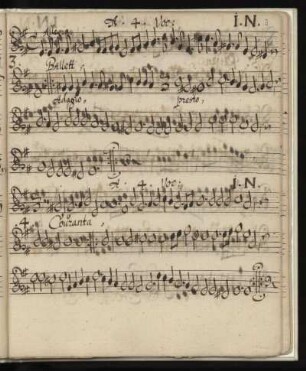 A. 4. Voc: I. N.
3. Ballett
Adagio, presto,
A. 4 Voc: I. N.
Couranta,